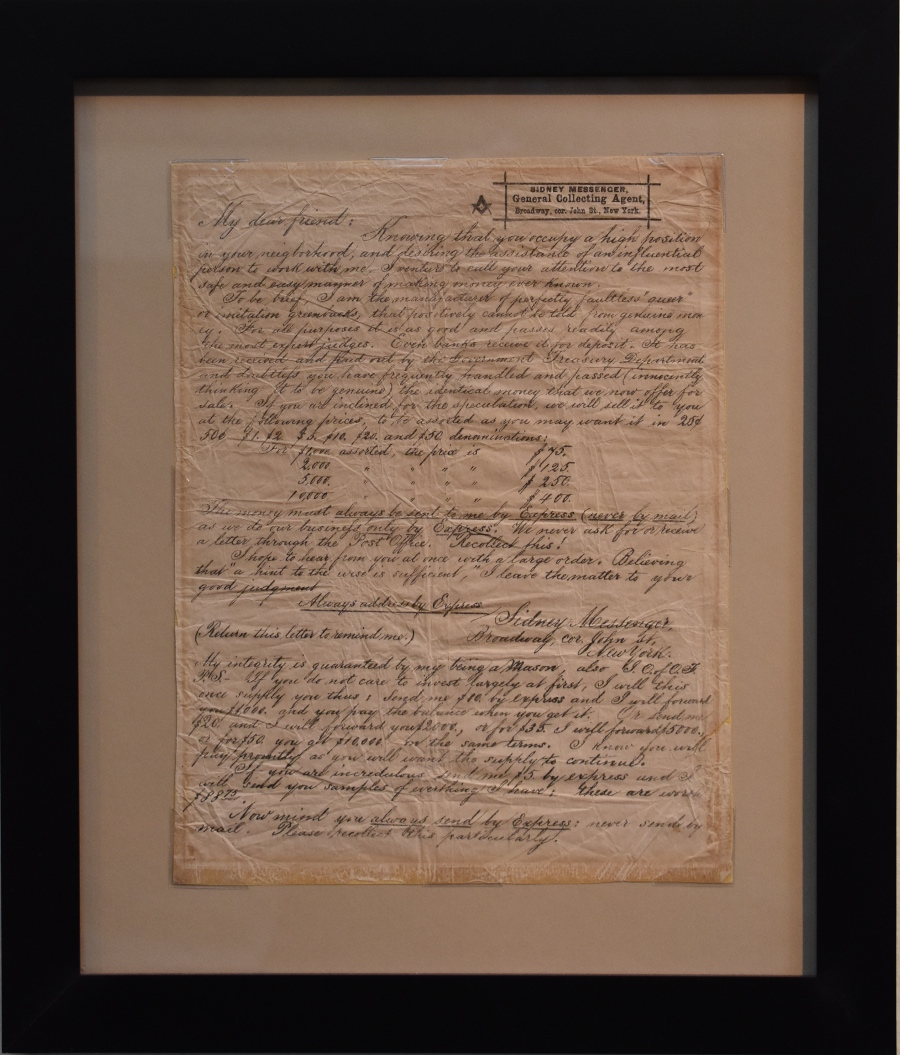 SIDNEY MESSENGER,
General Collecting Agent,
Broadway, cor. John St., New York.
My dear friend:
Knowing that you occupy a high position
in your neigborhood, and desiring the assistance of an influential
person to work with me, I venture to call your attention to the most
safe and easy manner of making money ever known.
To be brief, I am the manufacturer of perfectly faultless "queer"
or imitation greenbacks, that positively cannot be told from genuine mon
ey. For all purposes it is as good and passes readily among
the most expert judges. Even banks receive it for deposit. It has
been received and paid out by the Government Treasury Department
and doubtless you have frequently handled and passed (innocently
thinking it to be genuine) the identical money that we now offer for
sale. If you are inclined for the speculation, we will sell it to you
at the following prices, to be assorted as you may want it in 25¢
50¢ $1. $2. $5. $10. $20. and $50. denominations:
For $1,000 assorted, the price is $75.
2,000 " " " " $125.
5,000. " " " " $250.
10,000 " " " " $400.
The money must always be sent to me by Express (never by mail)
as we do our business only by Express. We never ask for or receive
a letter through the Post Office. Recollect this.
I hope to hear from you at once with a large order. Believing
that "a hint to the wise is sufficient, I leave the matter to your
good judgment
Always address by Express
Sidney Messenger,
(Return this letter to remind me.) Broadway, cor. John St,
New York.
My integrity is guaranteed by my being a Mason, also I.O. of O.F.
P.S. If you do not care to invest largely at first, I will this
once supply you thus: send me $10. by express and I will forward
you $1000. and you pay the balance when you get it. Or send me
$20. and I will forward you $2000., or for $35. I will forward $5000.,
or for $50. you get $10,000. on the same terms. I know you will
pay promptly as you will want the supply to continue.
If you are incredulous send me $5. by express and I
will send you samples of everthing I have: these are worth
$88 75.
Now mind you always send by Express: never send by
mail. Please recollect this particularly.